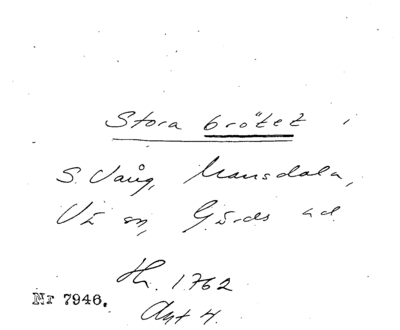 Stora brötet
S. Vång, Mansdala,
Vä sn, Gärds hd.
Hr. 1762
Akt 4.
Nr 7946.